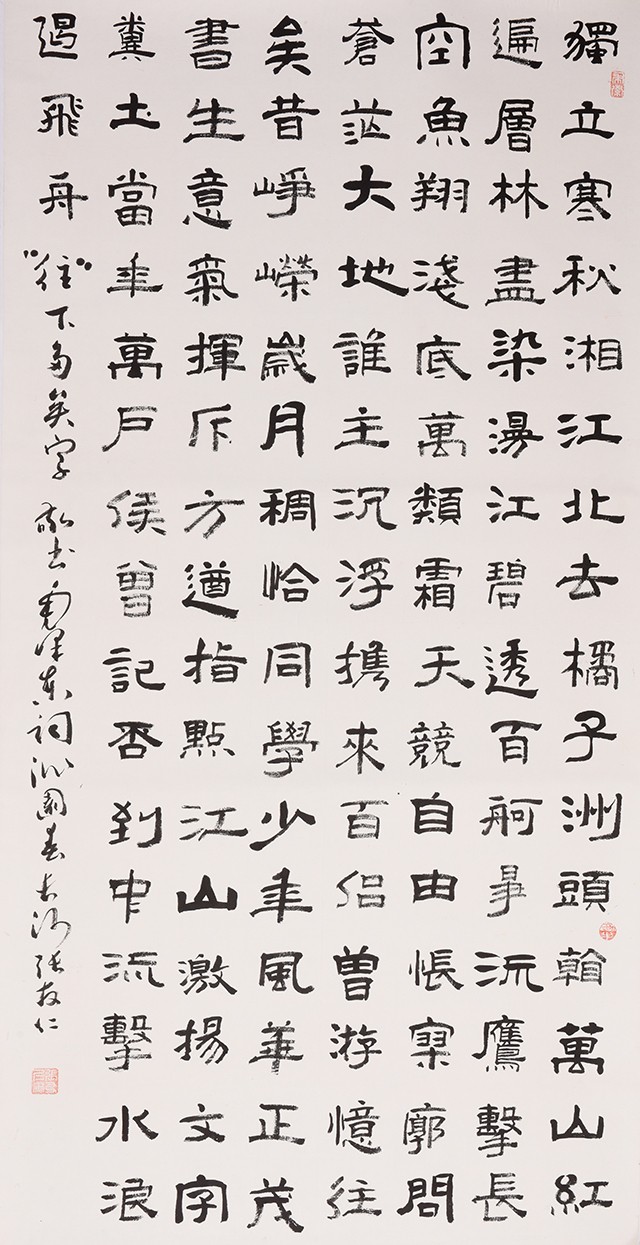 獨立寒秋湘江北去橘子洲頭看萬山紅
遍層林盡染漫江碧透百舸爭流鷹擊長
空魚翔淺底萬類霜天競自由悵寥廓問
蒼茫大地誰主沉浮攜來百侶曾游憶往
矣昔崢嶸歲月稠恰同學少年風華正茂
書生意氣揮斥方遒指點江山激揚文字
糞土當年萬戶侯曾記否到中流擊水浪
遏飛舟 "往"下多矣字 敬书毛澤東詞沁園春長沙 張友仁